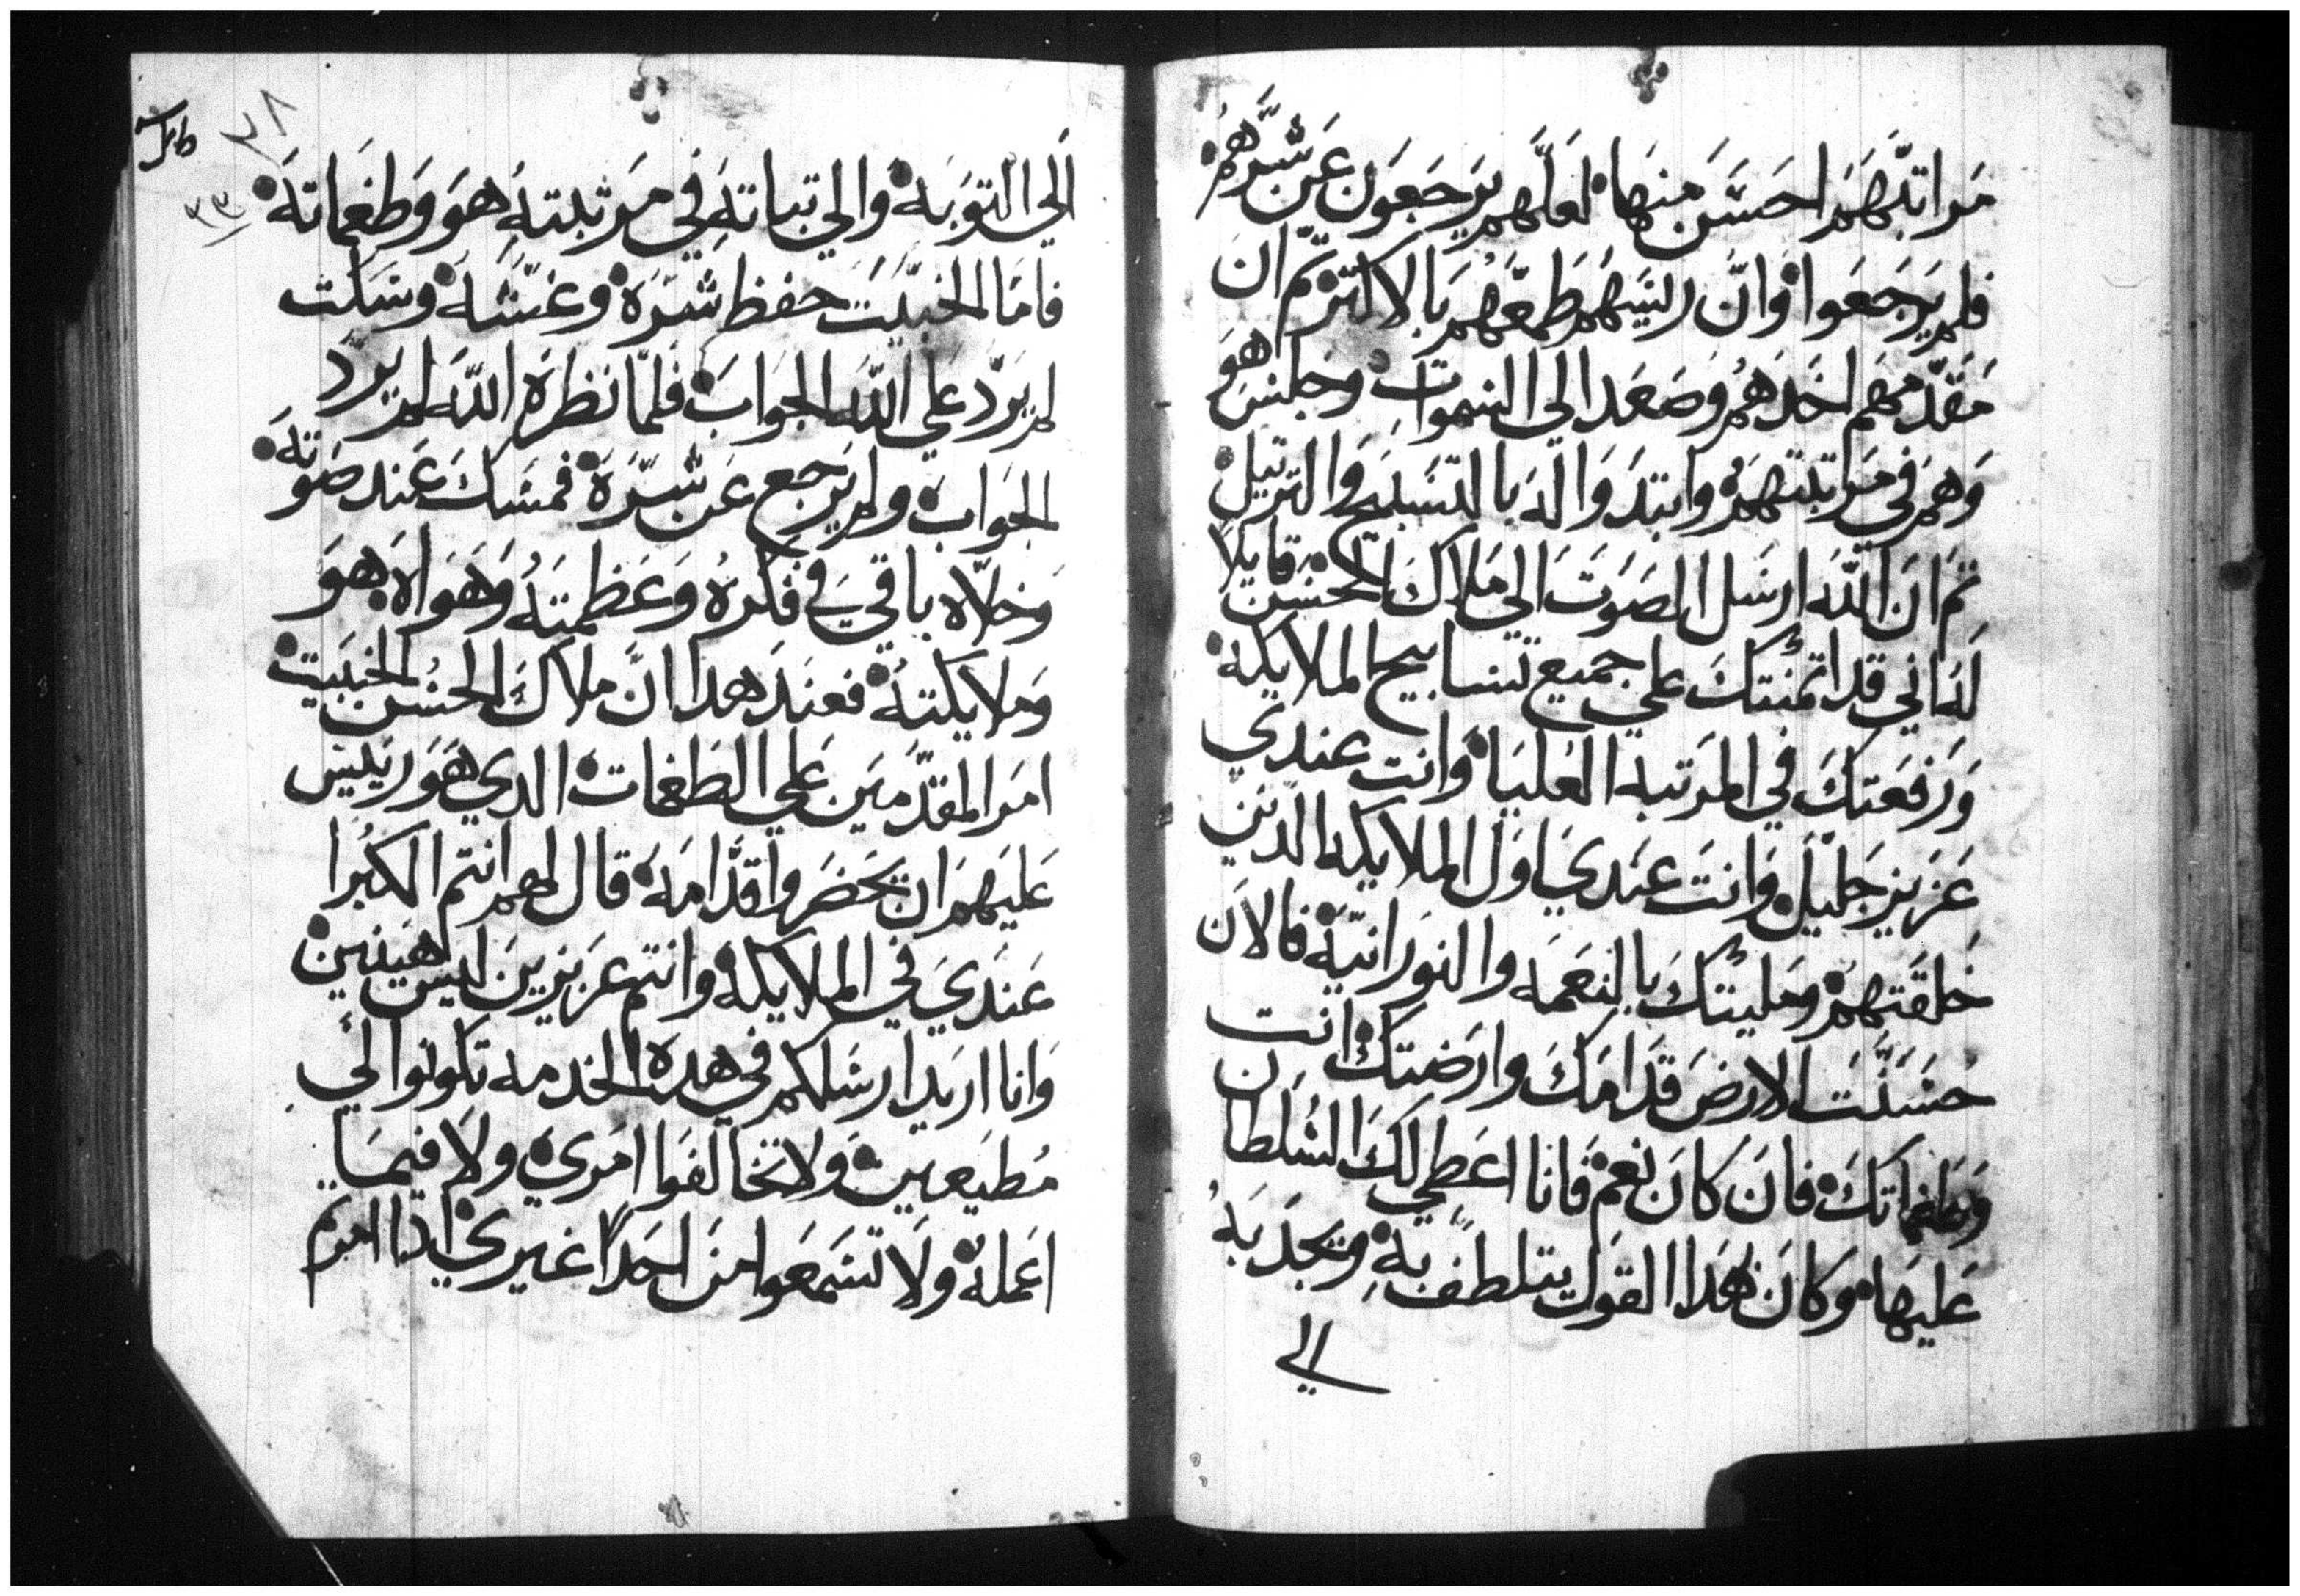 مراتبهم احسن منها لعلهم يرجعون عن شرهم
فلم يرجعوا وان رييسهم طمعهم بالاكتر تم ان
مقدمهم اخدهم وصعد الي السموات وجلس هو
وهم في مراتبتهم وابتدوا له بالتسبيح والترتيل
تم ان الله ارسل الصوت الي ملاك الحسن قايلا
له اني قد اتمنتك علي جميع تسابيح الملايكه
ورفعتك في المرتبه العليا وانت عندي
عزيز جليل وانت عندي اول الملايكه الدين
خلقتهم ومليتك بالنعمه والنورانيه فالان
حسنت الارض قدامك وارضتك انت
وطغماتك فان كان نعم فانا اعطي لك السلطان
عليها وكان هدا القول يتلطف به ويجدبه
الي
٣٨
٣٣
الي التوبه والي تباته في مرتبته هو وطغماته
فاما الخبيت حفظ شره وغشه وسكت
لم يرد علي الله الجواب فلما نظره الله لم يرد
الجواب ولم يرجع عن شره فمسك عند صوته
وخلاه باقي في فكره وعظمته وهواه هو
وملايكته فعند هدا ان ملاك الحسن الخبيت
امر المقدمين علي الطغمات الدي هو رييس
عليهم ان يحضروا قدامه قال لهم انتم الكبرا
عندي في الملايكه وانتم عزيزين ليس هينين
وانا اريد ارسلكم في هده الخدمه تكونوا لي
مطيعين ولا تخالفوا امري ولا فيما
اعمله ولا تسمعوا من احدا غيري ادا امرتم